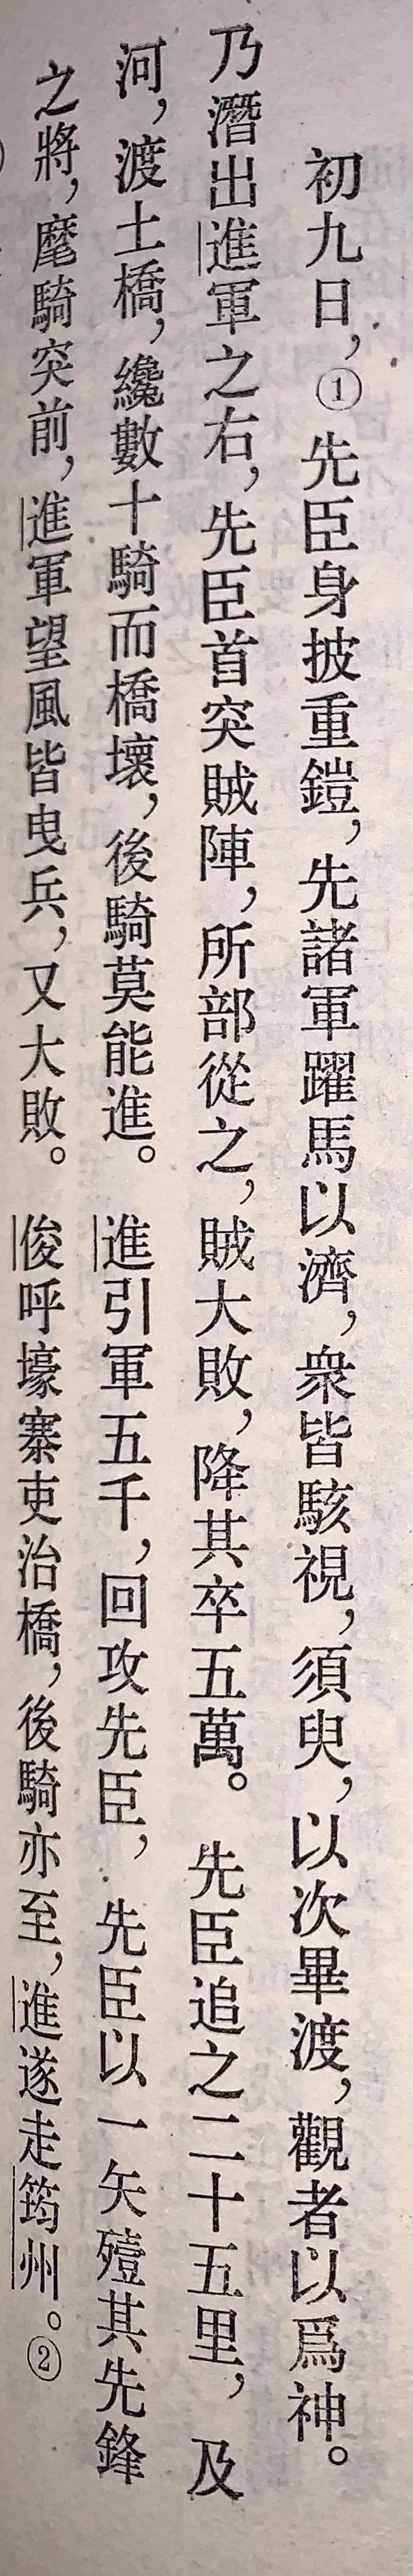 初九日，①先臣身披重鎧，先諸軍躍馬以濟，衆皆駭視，須臾，以次畢渡，觀者以爲神。
乃潛出進軍之右，先臣首突賊陣，所部從之，賊大敗，降其卒五萬。先臣追之二十五里，及
河，渡土橋，纔數十騎而橋壞，後騎莫能進。進引軍五千，回攻先臣，先臣以一矢殪其先鋒
之將，麾騎突前，進軍望風皆曳兵，又大敗。俊呼壕寨吏治橋，後騎亦至，進遂走筠州。②